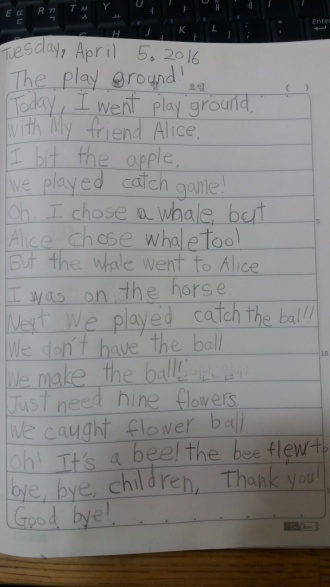 Tuesday, April 5, 2016
The play ground!
Today, I went play ground.
with My friend Alice.
I bit the apple.
we played catch game!
Oh. I chose a whale, but
Alice chose whale too!
But the whale went to Alice
I was on the horse
Next we played catch the ball!
We don't have the ball
We make the ball!
Just need nine flowers
we caught flower ball
Oh! It's a bee! the bee flew to
bye, bye, children, Thank you!
Good bye!